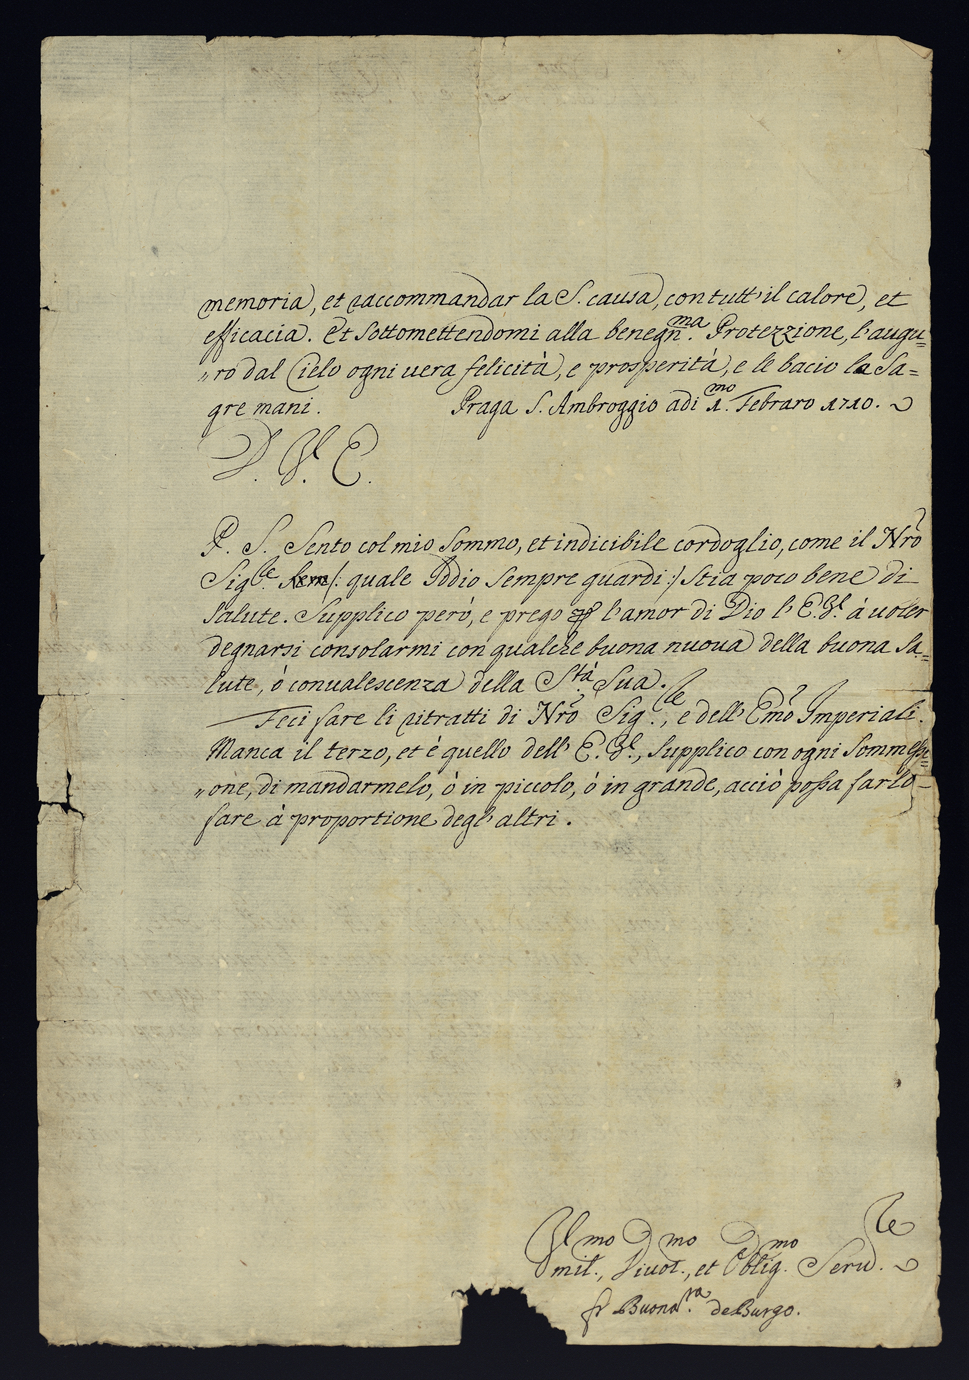 memoria, et raccommandar la S. causa, con tutt' il calore, et
efficacia. Et sottomettendomi alla benegn.ma Protezzione, l'augu=
"ro dal Cielo ogni vera felicità, e prosperità, e le bacio le Sa=
gre mani. Praga S. Ambroggio adi 1.mo Febraro 1710.
D. V. E.
P. S. Sento col mio sommo, et indicibile cordoglio, come il Nrõ
Sig.le /: quale Iddio sempre guardi :/ stia poco bene di
salute. Supplico però, e prego l'amor di Dio l'E.V. à voler
degnarsi consolarmi con qualche buona nuova della buona sa=
lute, ò convalescenza della S.tà Sua.
Feci fare li ritratti di Nrõ Sig.le, e dell' Emõ Imperiali.
Manca il terzo, et è quello dell' E. V., supplico con ogni sommessi=
"one, di mandarmelo, ò in piccolo, ò in grande, acciò possa farlo
fare à proportione degl' altri.
Vmil.mo, Divot.mo, et Oblig.mo Serv.re
fr Buona.ra de Burgo.